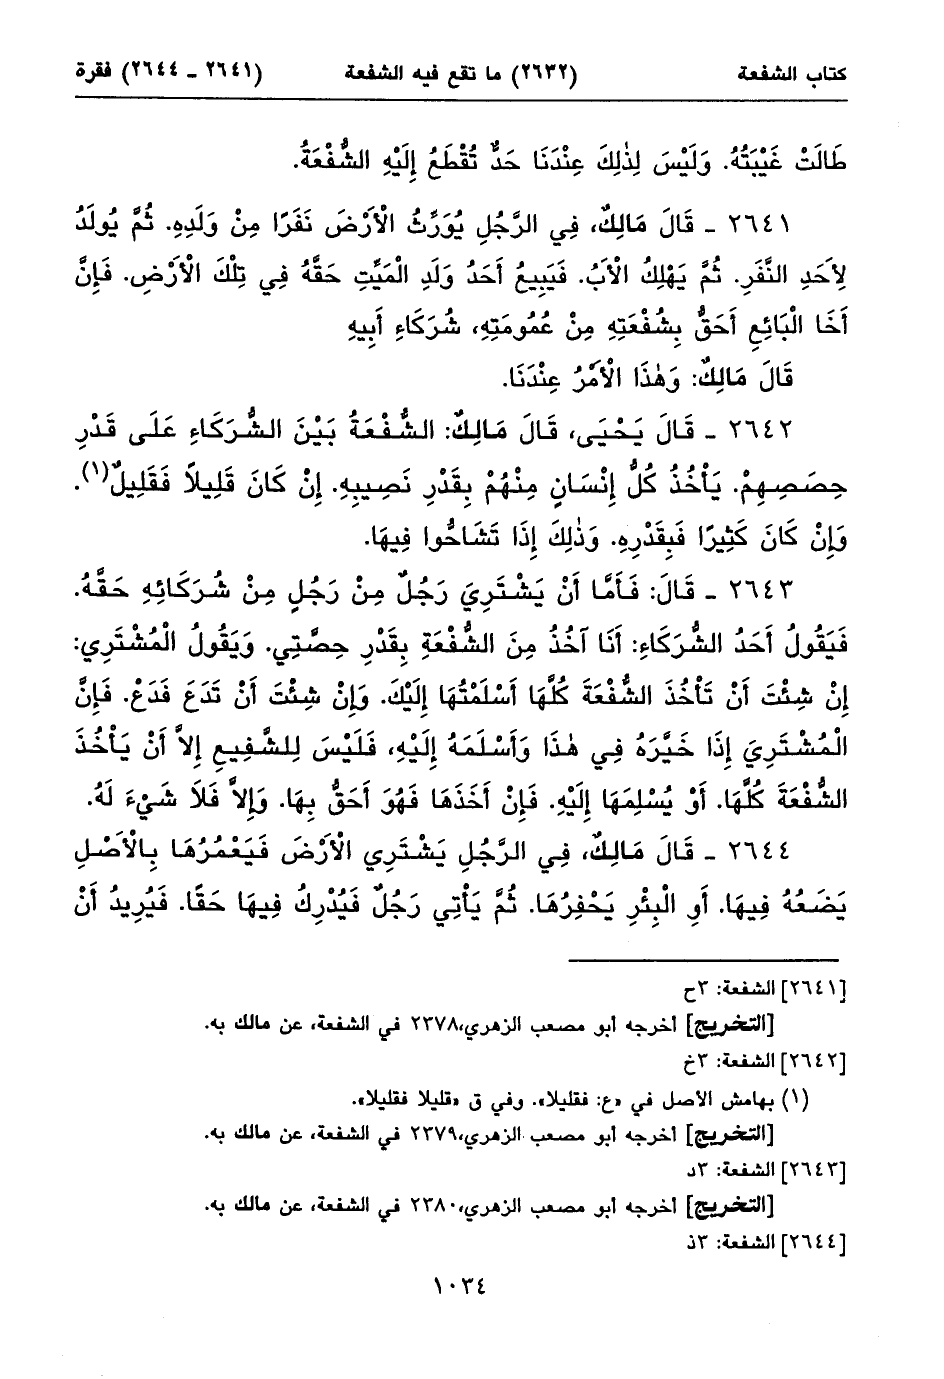 كتاب الشفعة (٢٦٣٢) ما تقع فيه الشفعة (٢٦٤١ ـ ٢٦٤٤) فقرة
طَالَتْ غَيْبَتُهُ. وَلَيْسَ لِذٰلِكَ عِنْدَنَا حَدٌّ تُقْطَعُ إِلَيْهِ الشُّفْعَةُ.
٢٦٤١ ـ قَالَ مَالِكٌ، فِي الرَّجُلِ يُوَرِّثُ الْأَرْضَ نَفَرًا مِنْ وَلَدِهِ. ثُمَّ يُولَدُ
لِأَحَدِ النَّفَرِ. ثُمَّ يَهْلِكُ الْأَبُ. فَيَبِيعُ أَحَدُ وَلَدِ الْمَيِّتِ حَقَّهُ فِي تِلْكَ الْأَرْضِ. فَإِنَّ
أَخَا الْبَائِعِ أَحَقُّ بِشُفْعَتِهِ مِنْ عُمُومَتِهِ، شُرَكَاءِ أَبِيهِ
قَالَ مَالِكٌ: وَهٰذَا الْأَمْرُ عِنْدَنَا.
٢٦٤٢ ـ قَالَ يَحْيَى، قَالَ مَالِكٌ: الشُّفْعَةُ بَيْنَ الشُّرَكَاءِ عَلَى قَدْرِ
حِصَصِهِمْ. يَأْخُذُ كُلُّ إِنْسَانٍ مِنْهُمْ بِقَدْرِ نَصِيبِهِ. إِنْ كَانَ قَلِيلاً فَقَلِيلٌ(١).
وَإِنْ كَانَ كَثِيرًا فَبِقَدْرِهِ. وَذٰلِكَ إِذَا تَشَاحُّوا فِيهَا.
٢٦٤٣ ـ قَالَ: فَأَمَّا أَنْ يَشْتَرِيَ رَجُلٌ مِنْ رَجُلٍ مِنْ شُرَكَائِهِ حَقَّهُ.
فَيَقُولُ أَحَدُ الشُّرَكَاءِ: أَنَا آخُذُ مِنَ الشُّفْعَةِ بِقَدْرِ حِصَّتِي. وَيَقُولُ الْمُشْتَرِي:
إِنْ شِئْتَ أَنْ تَأْخُذَ الشُّفْعَةَ كُلَّهَا أَسْلَمْتُهَا إِلَيْكَ. وَإِنْ شِئْتَ أَنْ تَدَعَ فَدَعْ. فَإِنَّ
الْمُشْتَرِيَ إِذَا خَيَّرَهُ فِي هٰذَا وَأَسْلَمَهُ إِلَيْهِ، فَلَيْسَ لِلشَّفِيعِ إِلاَّ أَنْ يَأْخُذَ
الشُّفْعَةَ كُلَّهَا. أَوْ يُسْلِمَهَا إِلَيْهِ. فَإِنْ أَخَذَهَا فَهُوَ أَحَقُّ بِهَا. وَإِلاَّ فَلاَ شَيْءَ لَهُ.
٢٦٤٤ ـ قَالَ مَالِكٌ، فِي الرَّجُلِ يَشْتَرِي الْأَرْضَ فَيَعْمُرُهَا بِالْأَصْلِ
يَضَعُهُ فِيهَا. أَوِ الْبِئْرِ يَحْفِرُهَا. ثُمَّ يَأْتِي رَجُلٌ فَيُدْرِكُ فِيهَا حَقًا. فَيُرِيدُ أَنْ
[٢٦٤١] الشفعة: ٣ح
[التخريج] أخرجه أبو مصعب الزهري،٢٣٧٨ في الشفعة، عن مالك به.
[٢٦٤٢] الشفعة: ٣خ
(١) بهامش الأصل في «ع: فقليلا». وفي ق «قليلا فقليلا».
[التخريج] أخرجه أبو مصعب الزهري،٢٣٧٩ في الشفعة، عن مالك به.
[٢٦٤٣] الشفعة: ٣د
[التخريج] أخرجه أبو مصعب الزهري،٢٣٨٠ في الشفعة، عن مالك به.
[٢٦٤٤] الشفعة: ٣ذ
١٠٣٤